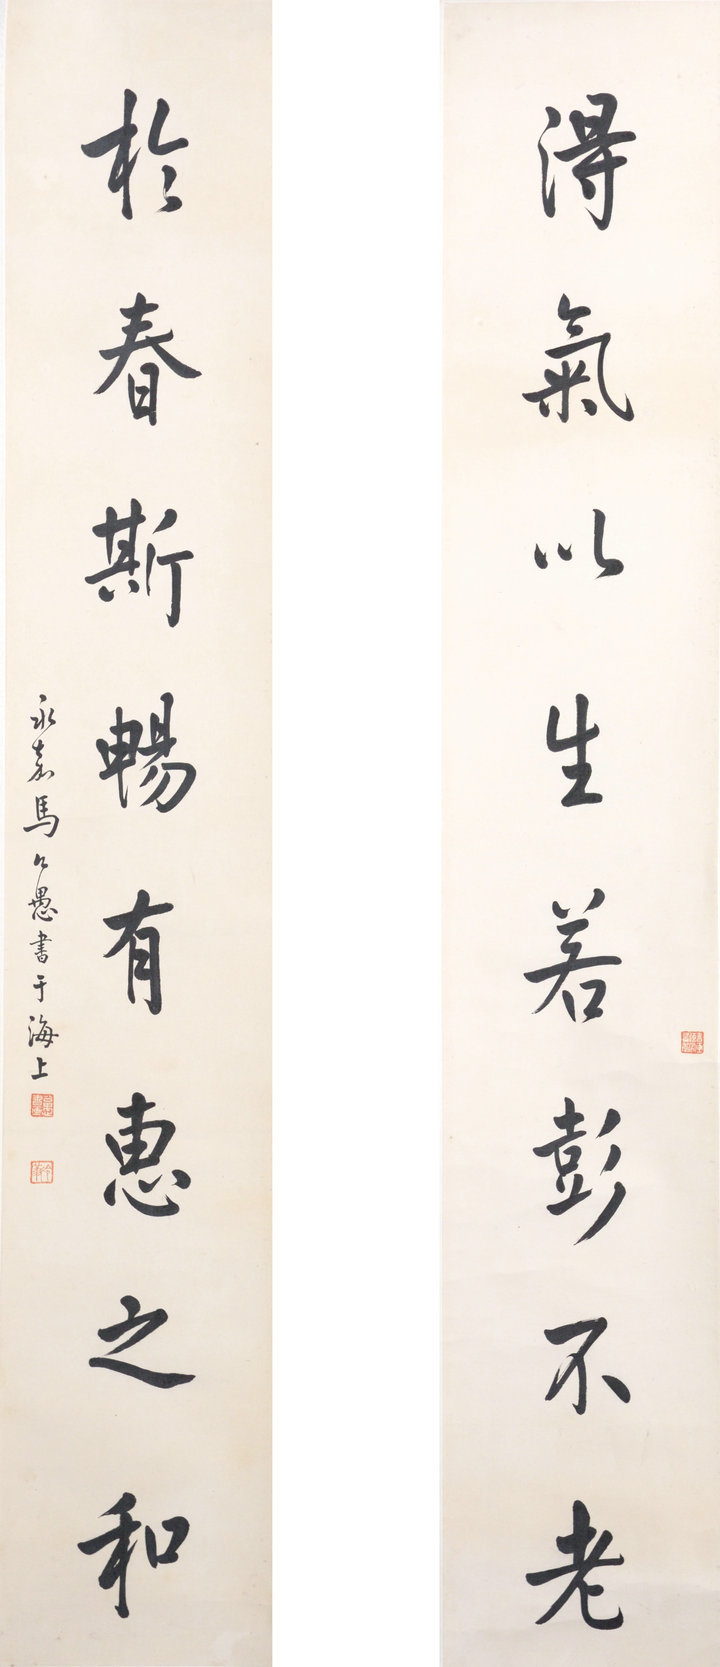 得氣以生若彭不老
於春斯暢有惠之和
永嘉馬公愚書于海上